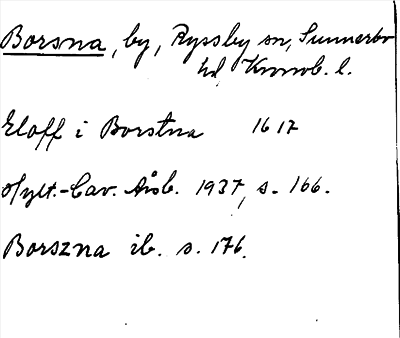 Borsna, by, Ryssby sn, Sunnerbo
hd, Kronob. l.
Eloff i Borstna 1617
Hylt.-Cav. Årsb. 1937, s. 166.
Borszna ib. s. 176.